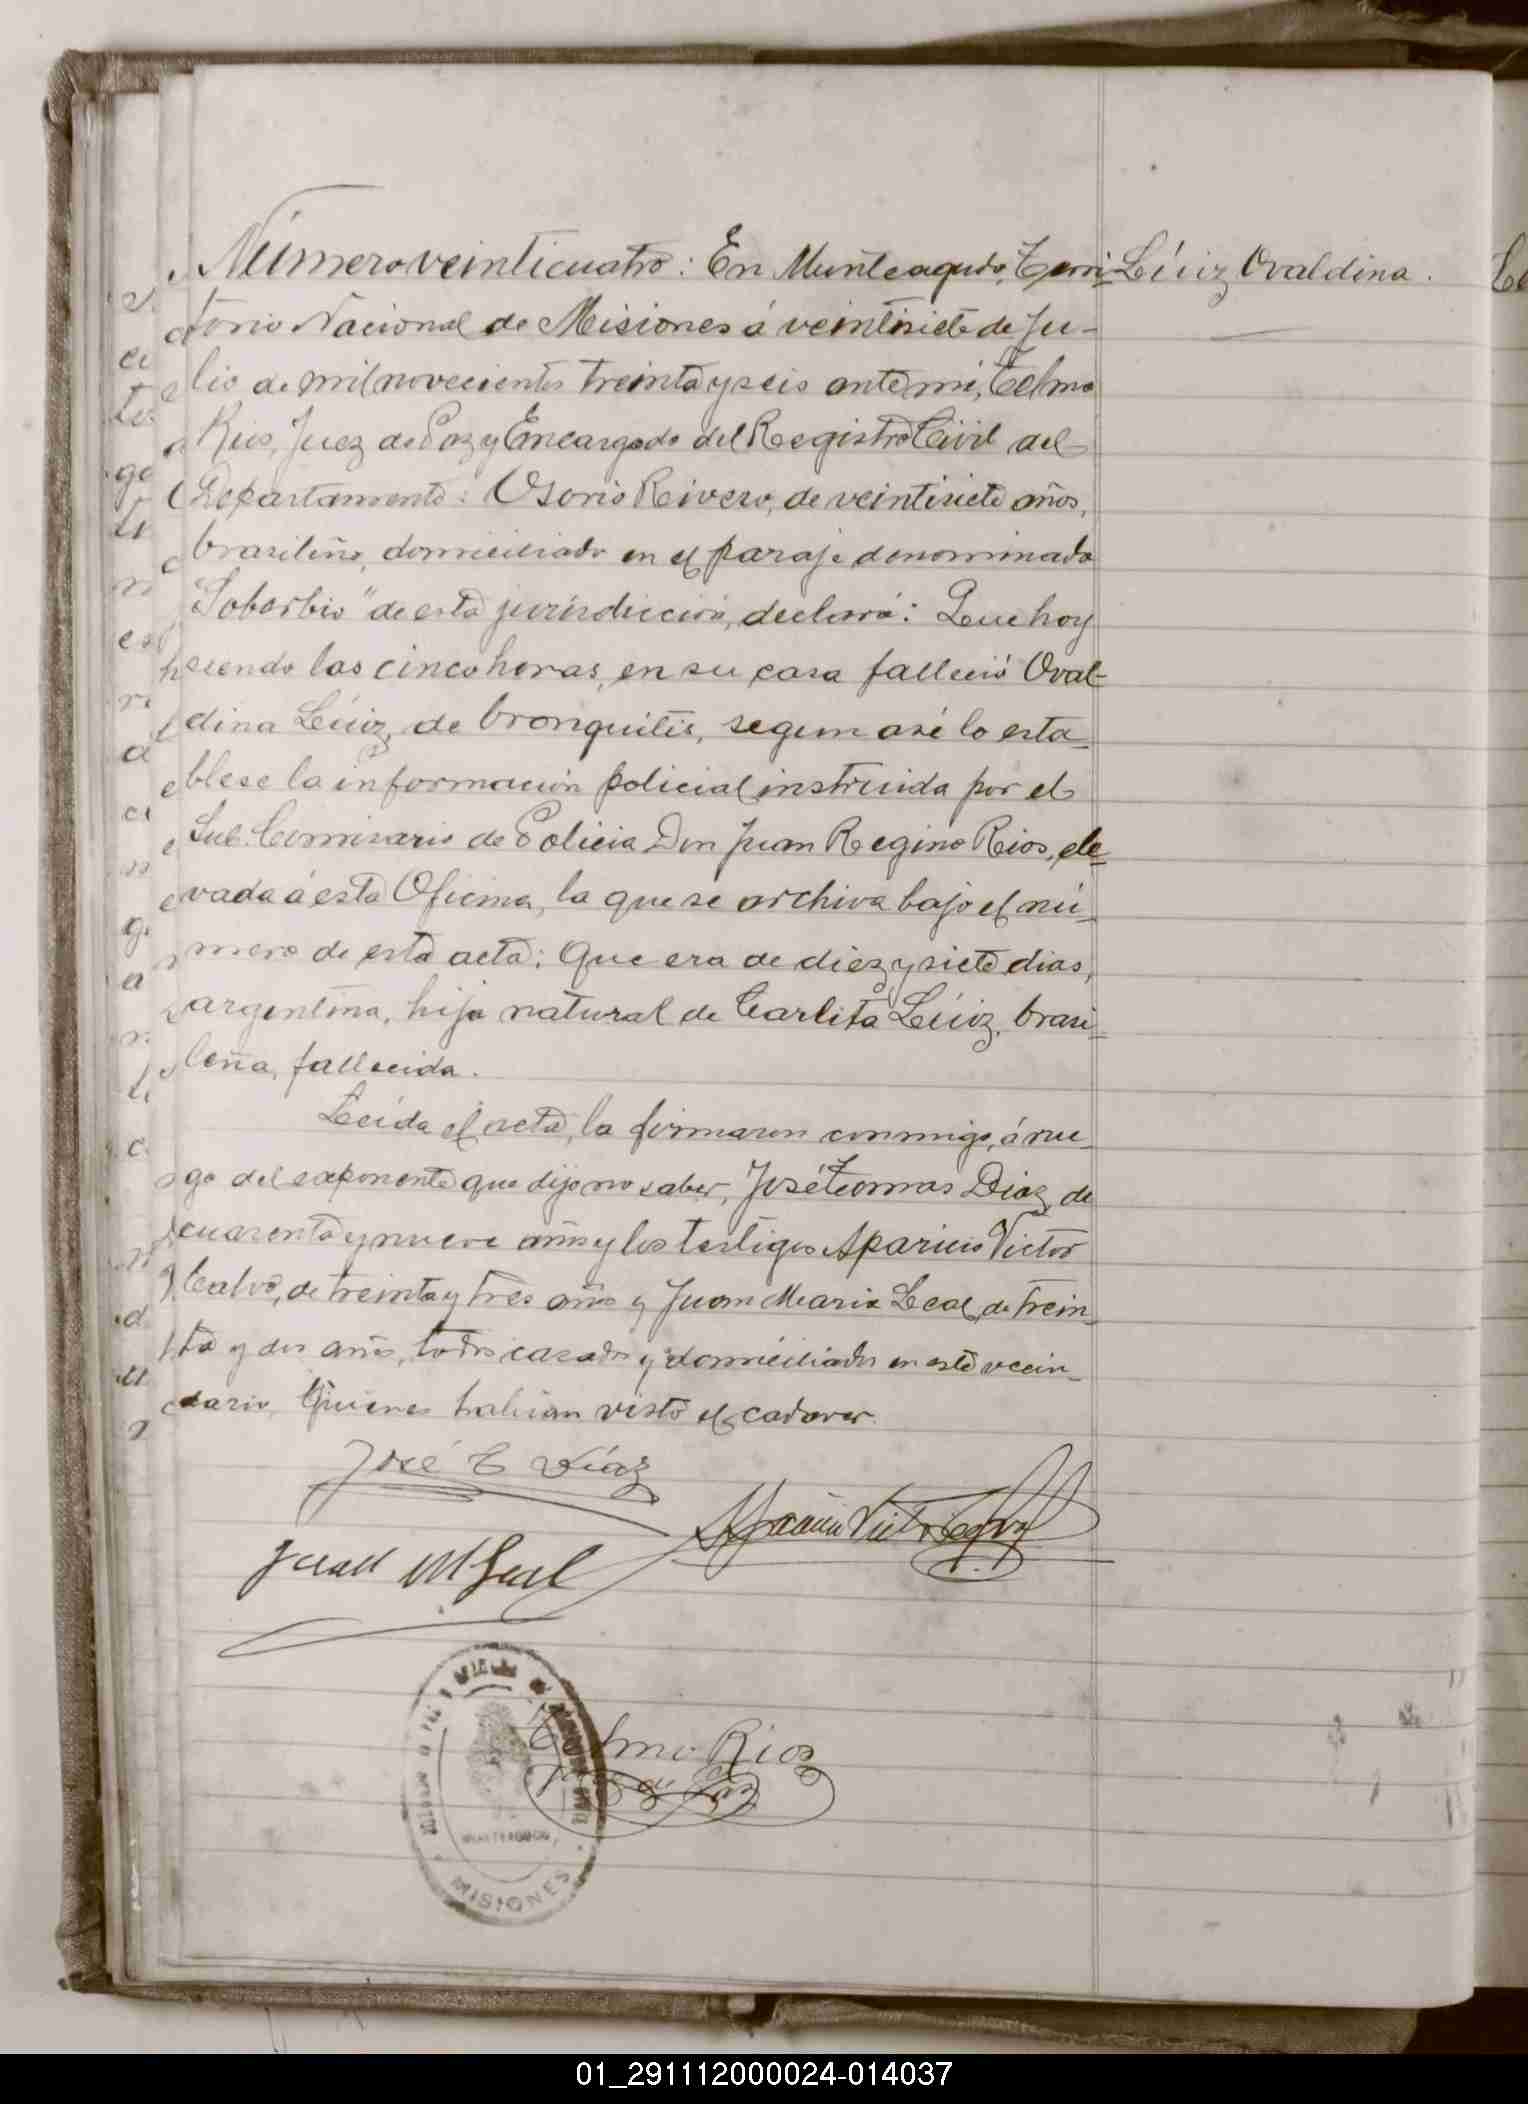 Número veinticuatro: En Munteagudo, Terri- Lúiz Ovaldina.
torio Nacional de Misiones á veintisiete de Ju-
lio de mil novecientos treinta y seis ante mi, Telmo
Rios, Juez de Paz y Encargado del Registro Civil del
Departamento: Osorio Rivero, de veintisiete años,
brasileño, domiciliado en el paraje denominado
Soberbio" de esta jurisdicción, declaró: Que hoy
siendo las cinco horas, en su casa falleció Oval-
dina Lúiz, de bronquitis, segun asi lo esta-
blese la información policial instruida por el
Sub. Comisario de Policia Don Juan Regino Rios, ele-
vada á esta Oficina, la que se archiva bajo el nú-
mero de esta acta: Que era de diez y siete dias,
argentina, hija natural de Carlita Lúiz, brasi-
leña, fallecida.
Leida el acta, la firmaron conmigo, á rue-
go del exponente que dijo no saber, José Teomas Diaz, de
cuarenta y nueve años y los testigos Aparicio Victor
Calvo, de treinta y tres años y Juan Maria Leal, de trein-
ta y dos años, todos casados y domiciliados en este vecin-
dario, Quienes habian visto el cadaver.
José T Díaz
Aparicio Victor Calvo
Juan M Leal
Telmo Rios
Juez de Paz
MISIONES
01_291112000024-014037